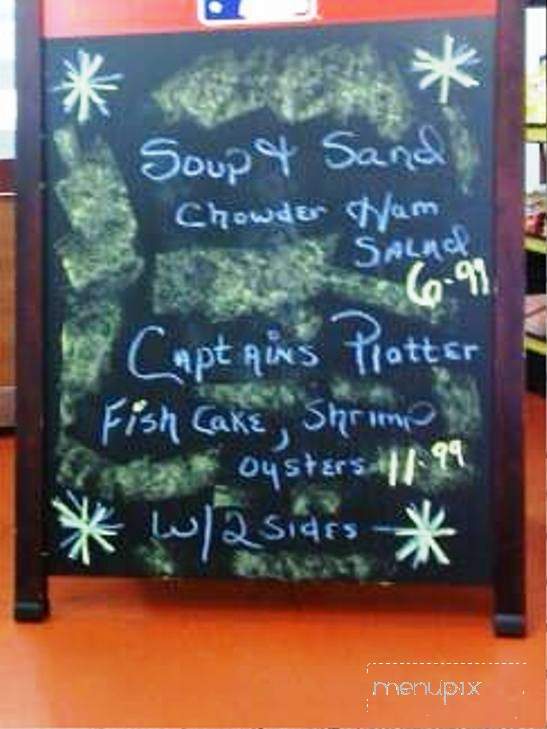 Soup & Sand
Chowder Ham
Salad
6.99
Captains Platter
Fish Cake, Shrimp
Oysters 11.99
W/2 Sides
menupix